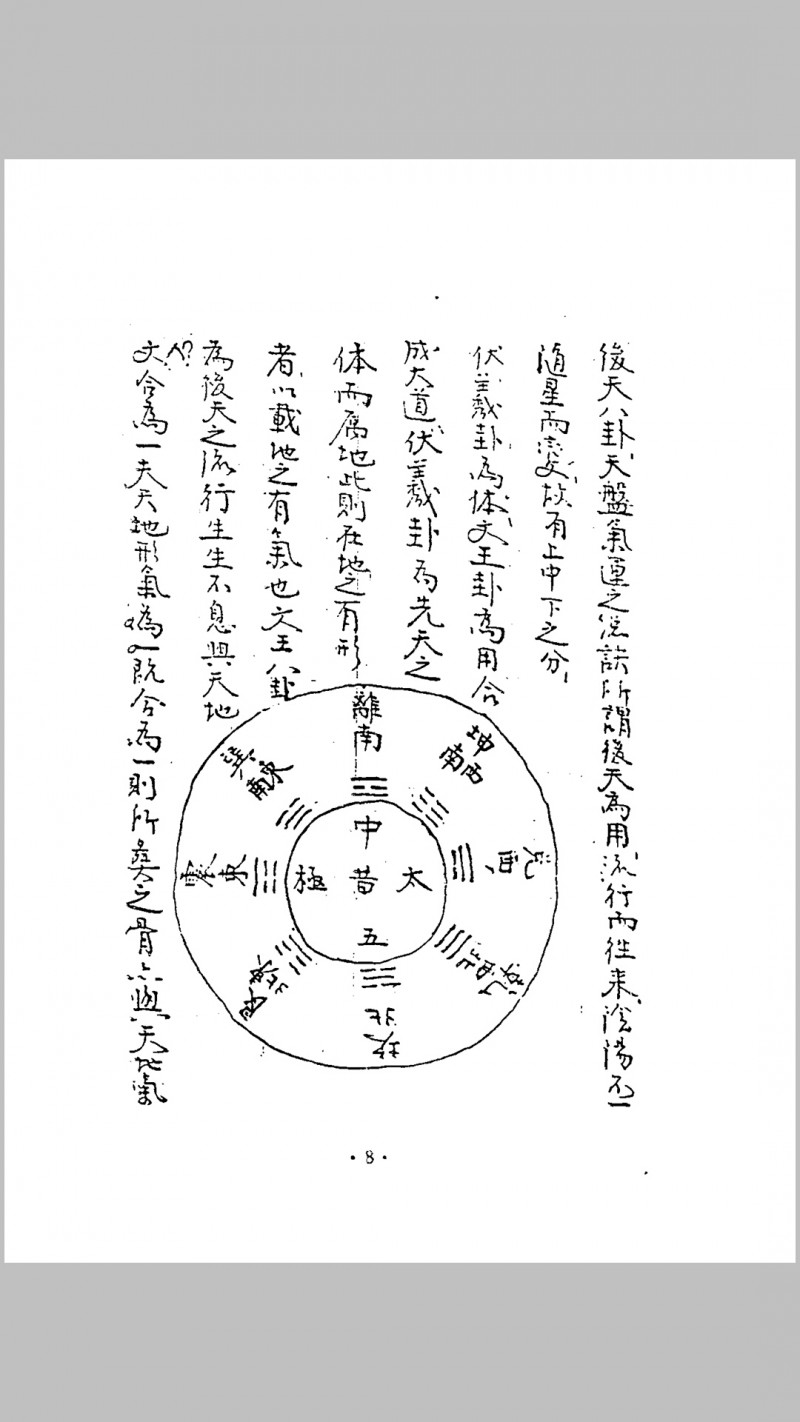 後天八卦、天盤氣運之總訣所謂後天為用、流行而往来、陰陽不一
随星而変、故有上中下之分、
伏羲卦為体、文王卦為用合
成大道、伏羲卦為先天之
体而属地此則在地之有形
者、以載地之有氣也文王八卦
為後天之流行生生不息與天地
人?
文合為一夫天地形氣為一既合為一則所葬之骨亦與天地氣
離南
坤西南
兌西
乾西北
坎北
艮東北
震東
巽東南
中
太昔極
五
·8·